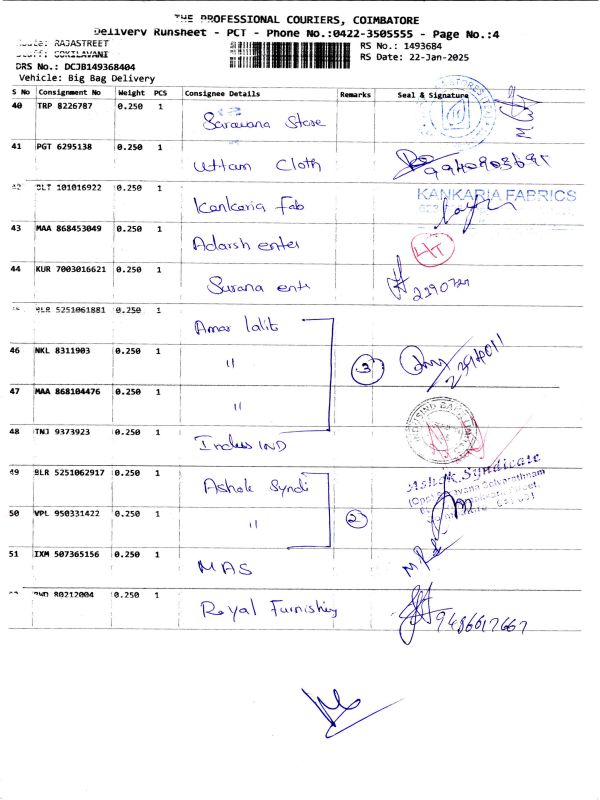 THE PROFESSIONAL COURIERS, COIMBATORE
Delivery Runsheet - PCT - Phone No.:0422-3505555 - Page No.:4
Route: RAJASTREET
Staff: GOKILAVANI
DRS No.: DCJB149368404
Vehicle: Big Bag Delivery
RS No.: 1493684
RS Date: 22-Jan-2025
S No Consignment No Weight PCS Consignee Details Remarks Seal & Signature
40 TRP 8226787 0.250 1 Saravana Store
41 PGT 6295138 0.250 1 Uttam Cloth
42 DLT 101016922 0.250 1 Kankaria Fab KANKARIA FABRICS
43 MAA 868453049 0.250 1 Adarsh enter
44 KUR 7003016621 0.250 1 Surana ent
BLR 5251061881 0.250 1 Amar lalit
46 NKL 8311903 0.250 1 " 3
47 MAA 868104476 0.250 1 "
48 TNJ 9373923 0.250 1 Indus IND
49 BLR 5251062917 0.250 1 Ashok Syndi Ashok Syndicate
50 VPL 950331422 0.250 1 " 2
51 IXM 507365156 0.250 1 MAS
80212004 0.250 1 Royal Furnishing 9486617667